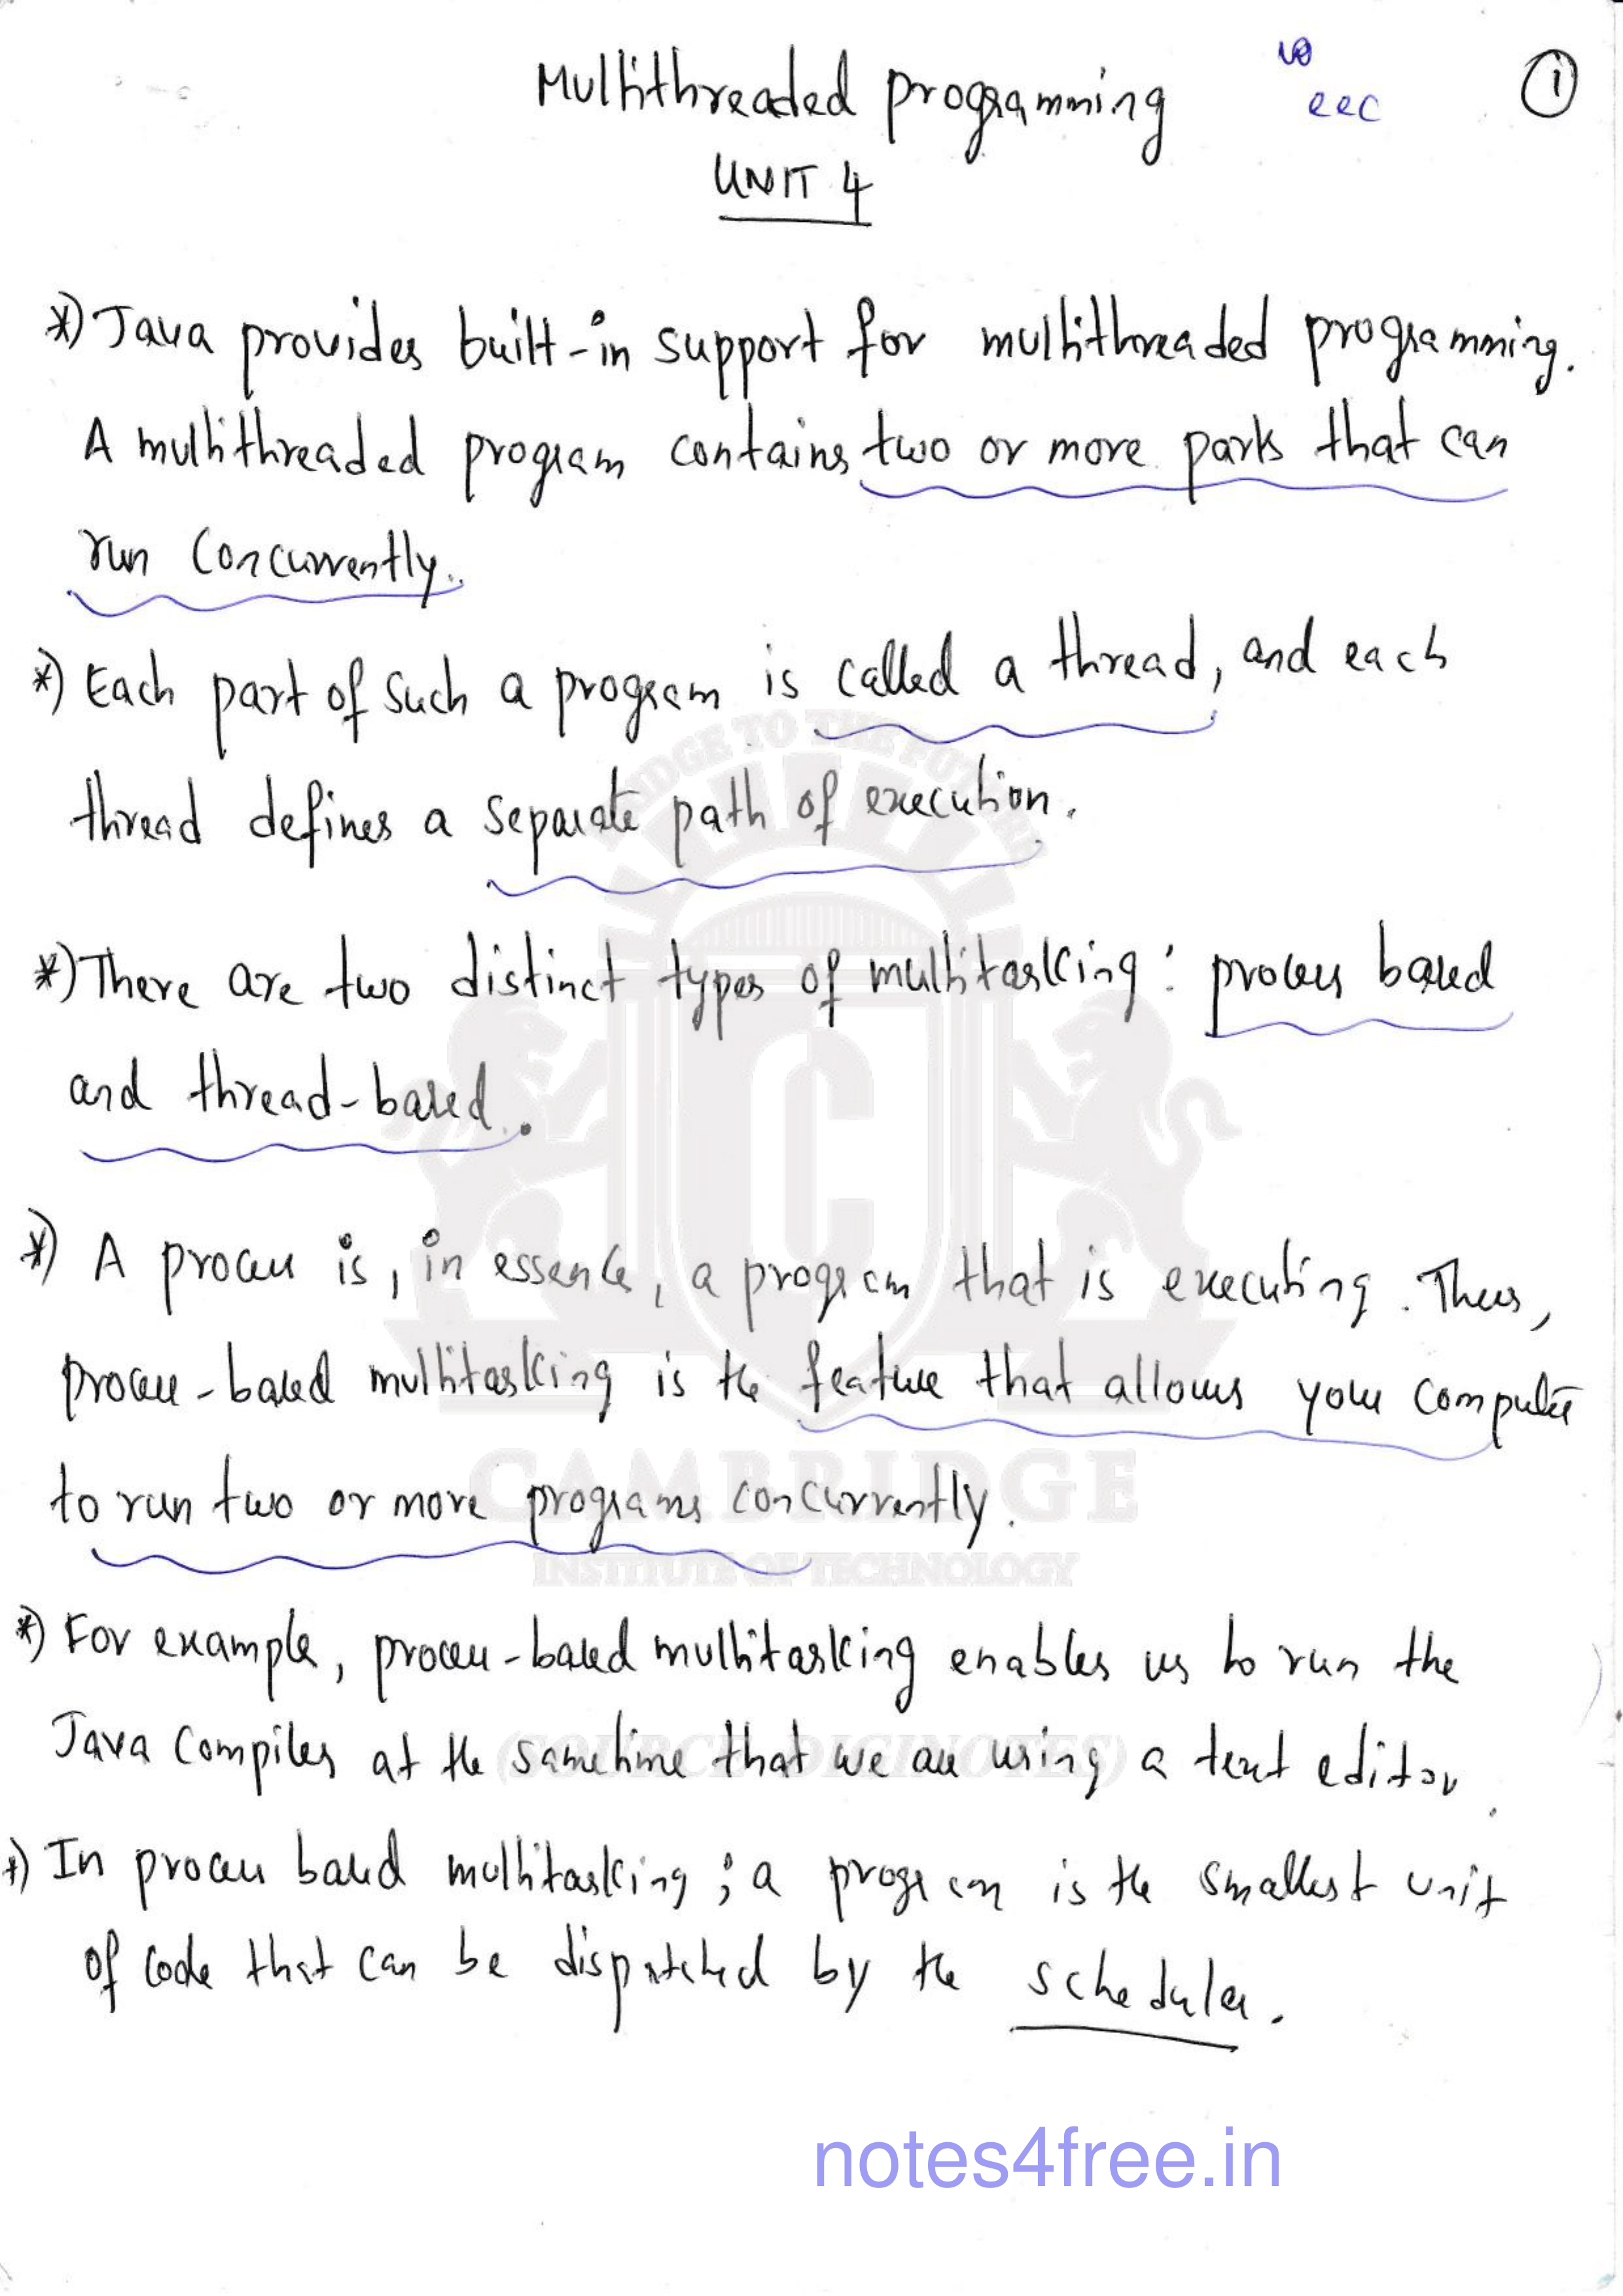 Multithreaded programming
eec
1
UNIT 4
*) Java provides built-in support for multithreaded programming.
A multithreaded program contains two or more parts that can
run concurrently.
*) Each part of such a program is called a thread, and each
thread defines a separate path of execution.
*) There are two distinct types of multitasking : process based
and thread-based.
*) A process is, in essence, a program that is executing. Thus,
process-based multitasking is the feature that allows your computer
to run two or more programs concurrently.
*) For example, process-based multitasking enables us to run the
Java compiler at the sametime that we are using a text editor.
*) In process based multitasking ; a program is the smallest unit
of code that can be dispatched by the scheduler.
BRIDGE TO THE FUTURE
C
CAMBRIDGE
INSTITUTE OF TECHNOLOGY
(SOURCE DIGINOTES)
notes4free.in